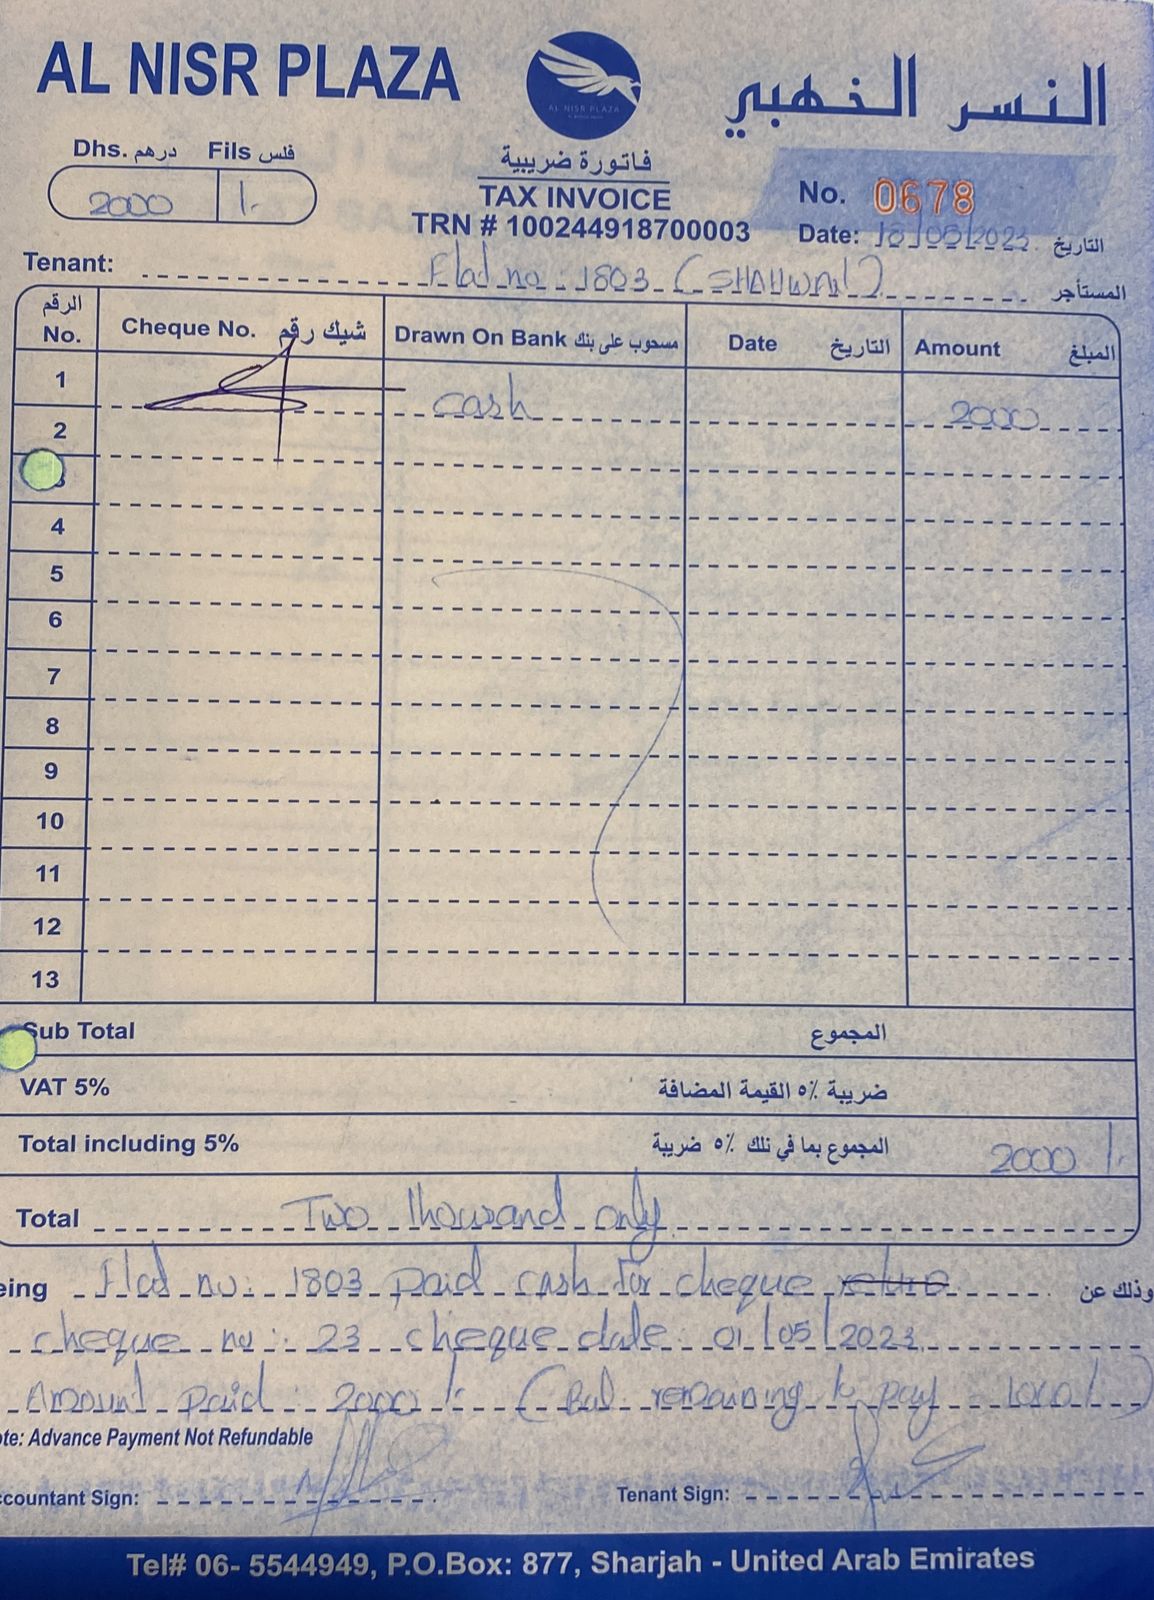 AL NISR PLAZA
النسر الخهبي
AL NISR PLAZA
Dhs. درهم Fils فلس
2000 /.
فاتورة ضريبية
TAX INVOICE
TRN # 100244918700003
No. 0678
Date: 18/05/2023 التاريخ
Tenant: Flat no : 1803 المستأجر
الرقم No. Cheque No. شيك رقم Drawn On Bank مسحوب على بنك Date التاريخ Amount المبلغ
1 cash 2000
2
3
4
5
6
7
8
9
10
11
12
13
Sub Total المجموع
VAT 5% ضريبة ٥٪ القيمة المضافة
Total including 5% المجموع بما في تلك ٥٪ ضريبة 2000 /.
Total Two thousand only
eing Flat no: 1803 paid cash for cheque وذلك عن
cheque no: 23 cheque date 01/05/2023
Amount paid : 2000 /. (Bal remaining to pay
ote: Advance Payment Not Refundable
ccountant Sign: Tenant Sign:
Tel# 06- 5544949, P.O.Box: 877, Sharjah - United Arab Emirates